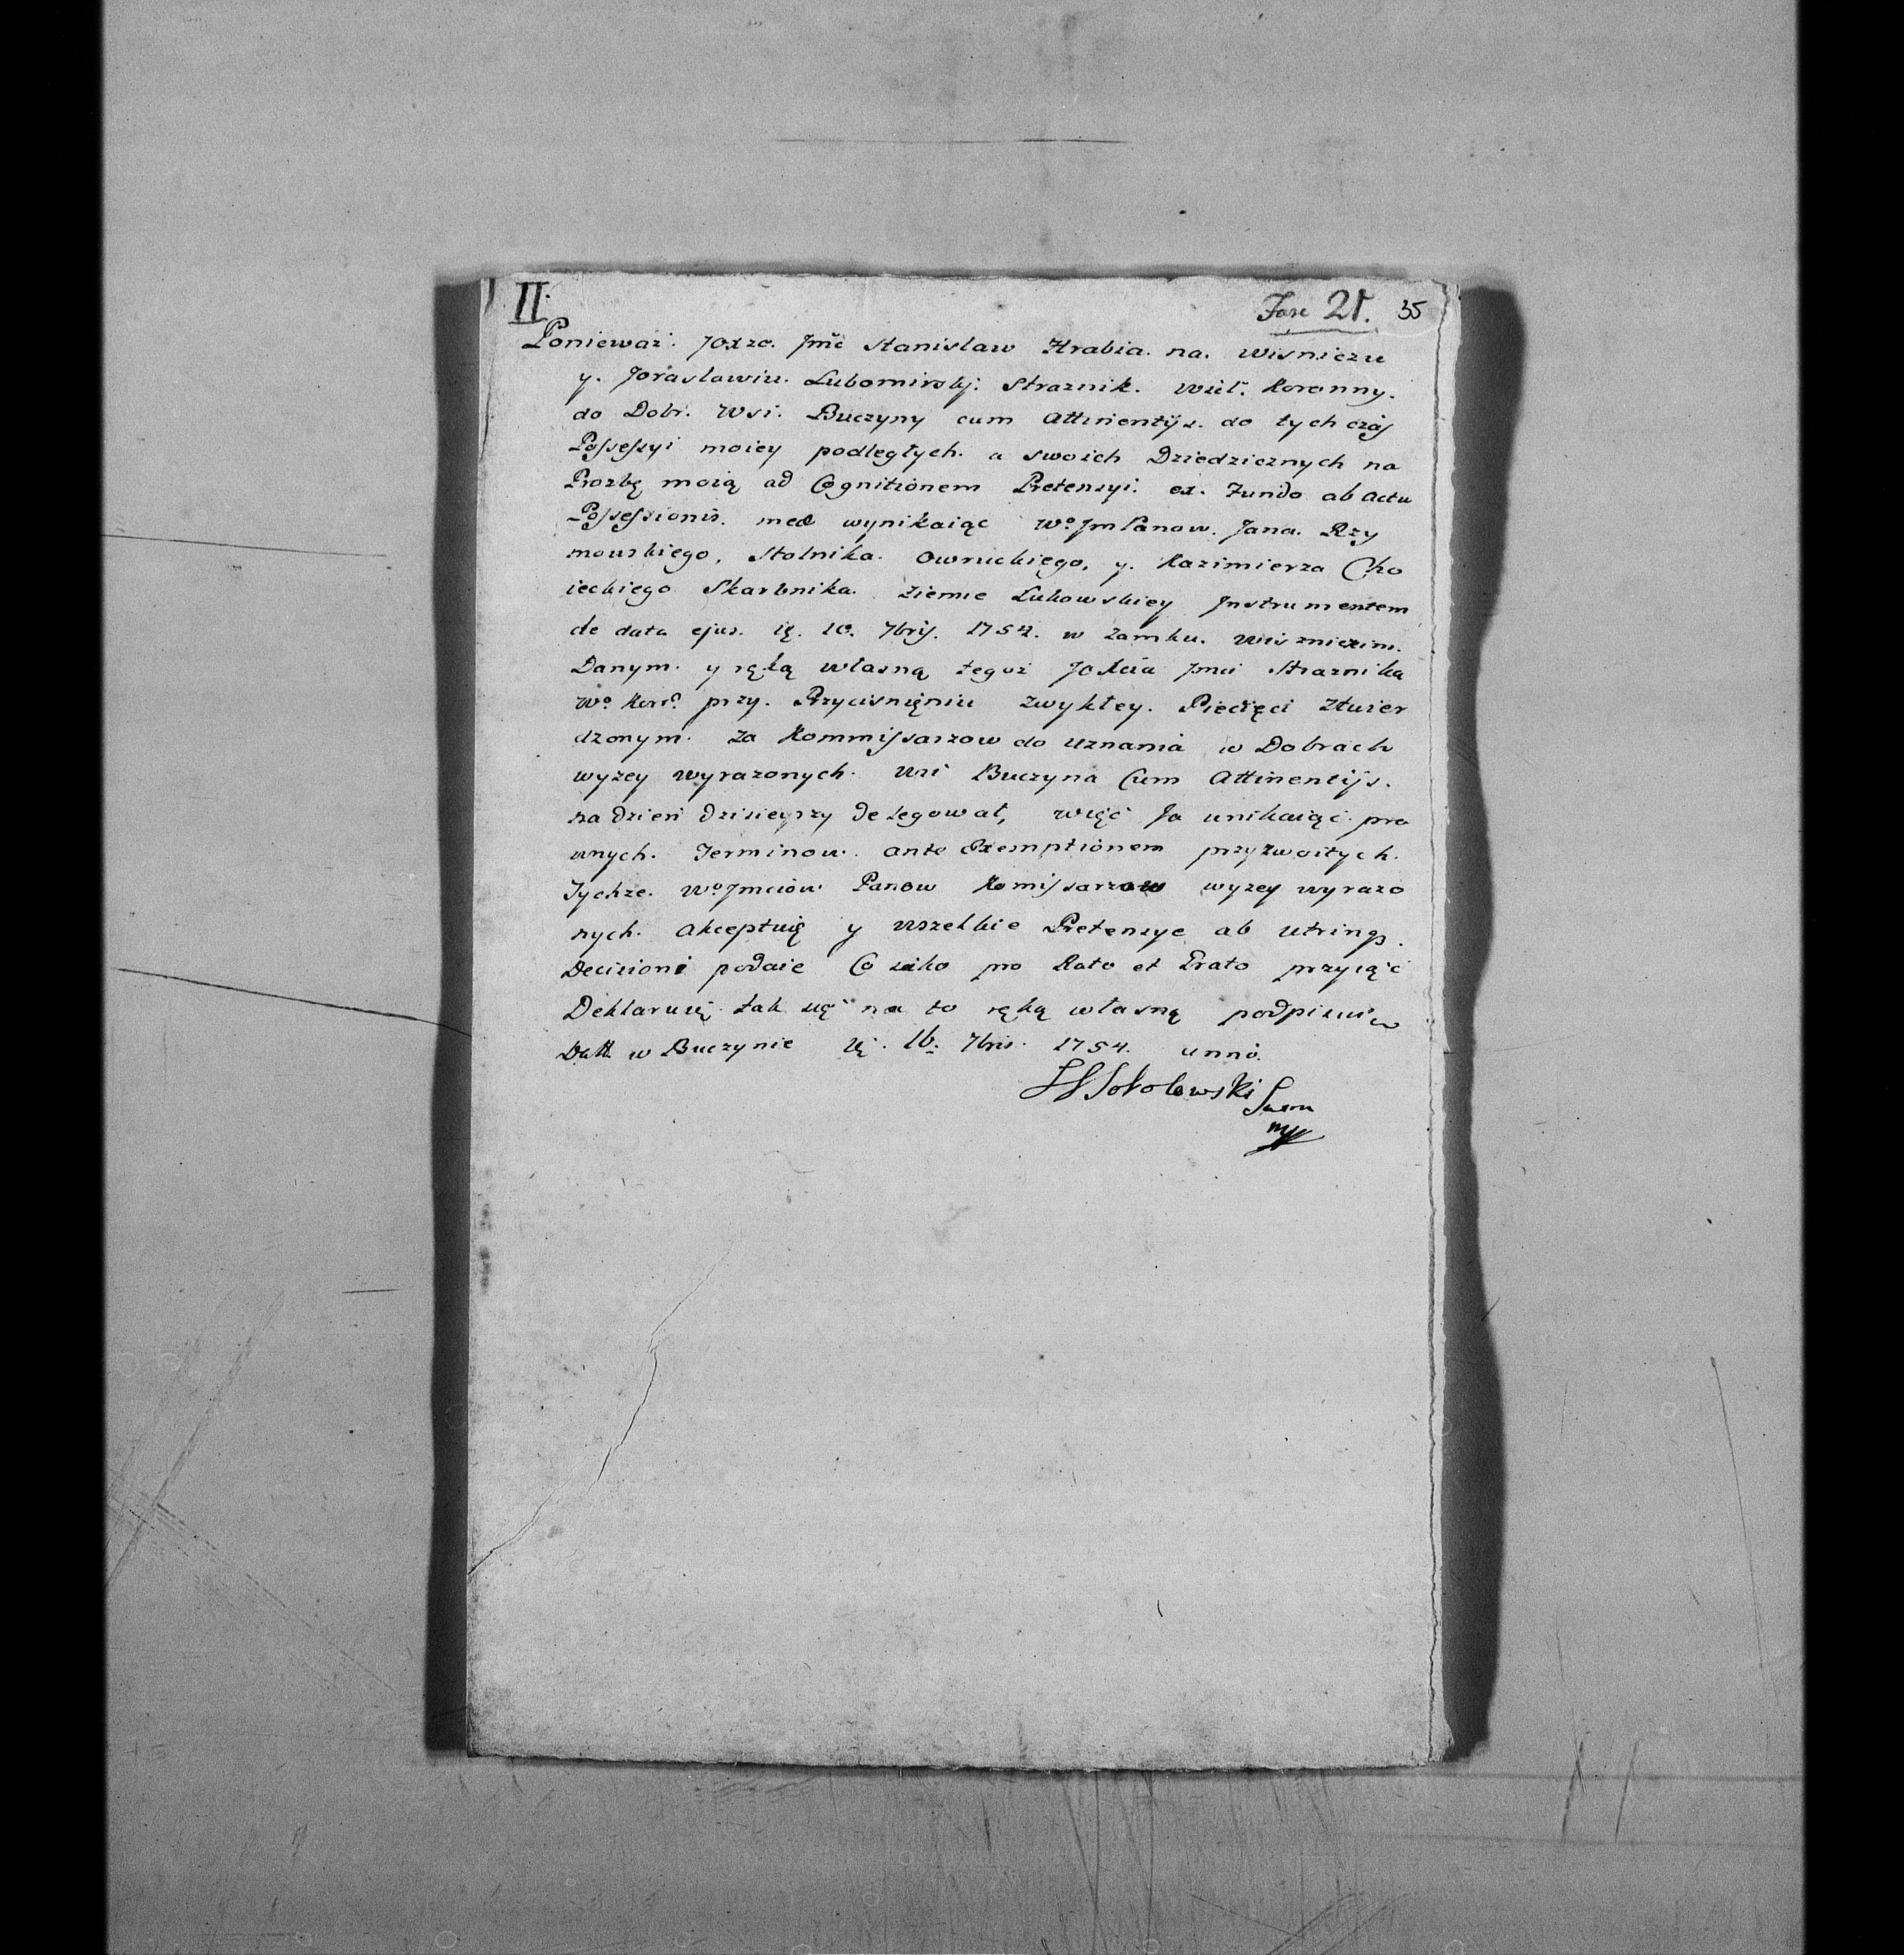 II.
Fasc 21. 35
Ponieważ. JOXzc. Jmć Stanislaw Hrabia. na. Wisniczu
y. Jarasławiu. Lubomirsky: Straznik. Wiel. Koronny.
do Dobr. Wsi. Buczyny cum Attinentÿs. do tych czás
Possessyi moiey podległych. a swoich Dziedzicznych na
Prozbę moią ad Cognitionem Pretensyi. ex. Fundo ab actu
Possessionis. meæ wynikaiąc Wo. Jm Panow. Jana. Rzy
mowskiego, Stolnika. Owruckiego, y. Kazimierza Cho
ieckiego Skarbnika. Ziemie Łukowskiey Jnstrumentem
de data ejus. 10. 7brÿ. 1754. w Zamku. Wisznickim.
Danym. y ręką własną tegoż JOXcia Jmci Straznika
Wo. Kor. przy. Przycisnięniu Zwykłey. Pieczęci Ztwier
dzonym. za Kommissarzow do uznania w Dobrach
wyzey wyrazonych. wsi Buczyna Cum Attinentÿs.
na dzień dzisieyszy delegował, więc Ja unikaiąc pra
wnych. Terminow. ante Exemptionem przyzwoitych.
Tychze. Wo. Jmciow Panow Komissarzow wyzey wyrazo
nych. Akceptuię y wszelkie Pretensye ab utrinq3.
Decizioni podaie Co iako pro Rato et Grato przyiąć
Deklaruię tak się na to ręką własną podpisuię
Datt. w Buczynie 16. 7bris. 1754. anno.
Sokolowski
mp